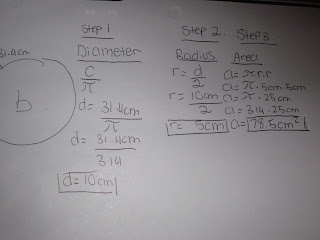 31.4cm
b
Step 1
Diameter
C
π
d = 31.4cm
π
d = 31.4cm
3.14
d = 10cm
Step 2
Radius
r = d
2
r = 10cm
2
r = 5cm
Step 3
Area
a = π r.r
a = π . 5cm . 5cm
a = π . 25cm
a = 3.14 . 25cm
a = 78.5cm²